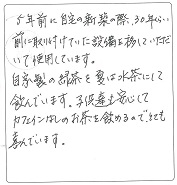 5年前に自宅の新築の際、30年くらい
前に取り付けていた設備を移していただ
いて使用しています。
自家製の緑茶を夏は水茶にして
飲んでいます。子供達も安心して
カフェインなしのお茶を飲めるのでとても
喜んでいます。